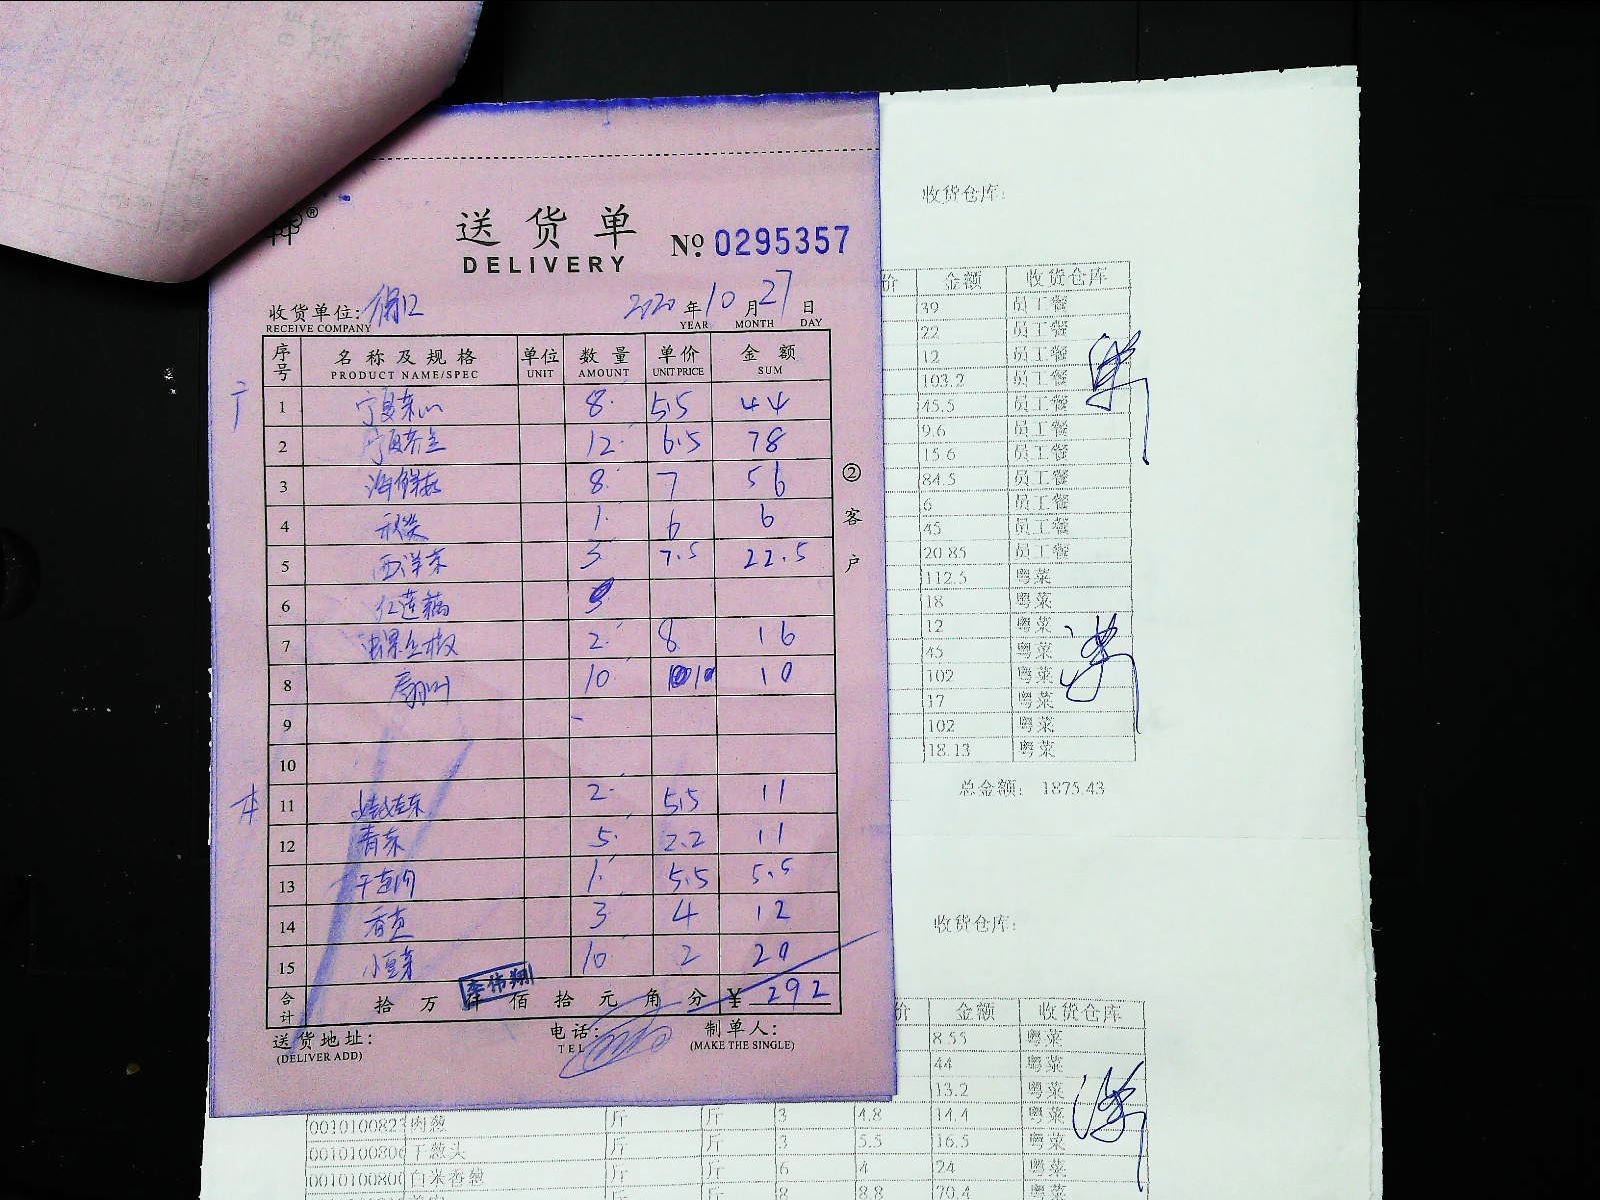 送货单
DELIVERY
№ 0295357
收货单位:
RECEIVE COMPANY
2020 年 10 月 27 日
YEAR MONTH DAY
序号 名称及规格 单位 数量 单价 金额
PRODUCT NAME/SPEC UNIT AMOUNT UNIT PRICE SUM
1 宁夏菜心 8 5.5 44
2 宁夏芥兰 12 6.5 78
3 海鲜菇 8 7 56
4 1 6 6
5 西洋菜 3 7.5 22.5
6 红莲藕
7 2 8 16
8 10 10 10
9
10
11 娃娃菜 2 5.5 11
12 青菜 5 2.2 11
13 1 5.5 5.5
14 3 4 12
15 10 2 20
合计 拾 万 仟 佰 拾 元 角 分 ¥ 292
李伟翔
送货地址:
(DELIVER ADD)
电话:
TEL
制单人:
(MAKE THE SINGLE)
②客户
收货仓库:
价 金额 收货仓库
39 员工餐
22 员工餐
12 员工餐
103.2 员工餐
45.5 员工餐
9.6 员工餐
15.6 员工餐
84.5 员工餐
6 员工餐
45 员工餐
20.85 员工餐
112.5 粤菜
18 粤菜
12 粤菜
45 粤菜
102 粤菜
17 粤菜
102 粤菜
18.13 粤菜
总金额: 1875.43
收货仓库:
价 金额 收货仓库
8.55 粤菜
44 粤菜
13.2 粤菜
肉葱 斤 斤 3 4.8 14.4 粤菜
干葱头 斤 斤 3 5.5 16.5 粤菜
斤 斤 6 4 24 粤菜
斤 斤 8 8.8 70.4 粤菜